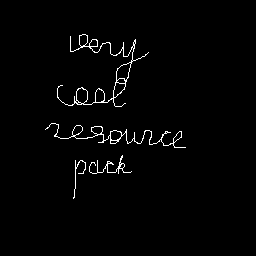 very
cool
resource
pack